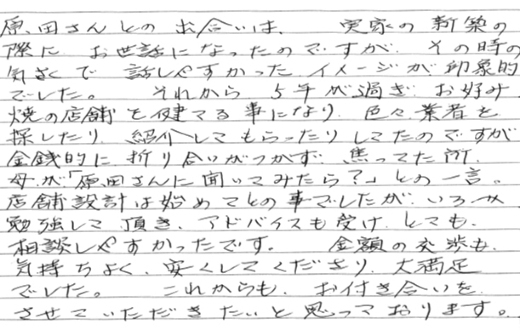 原田さんとの出合いは、 実家の新築の
際に お世話になったのですが、その時の
気さくで 話しやすかった イメージが 印象的
でした。 それから 5年が過ぎ お好み
焼の店舗を建てる事になり、色々業者を
探したり、紹介してもらったりしてたのですが
金銭的に 折り合いがつかず、焦ってた所、
母が「原田さんに聞いてみたら?」との一言。
店舗設計は始めてとの事でしたが、いろいろ
勉強して頂き、アドバイスも受け、とても、
相談しやすかったです。 金額の交渉も、
気持ちよく、安くしてくださり、大満足
でした。 これからも、お付き合いを
させていただきたいと思っております。